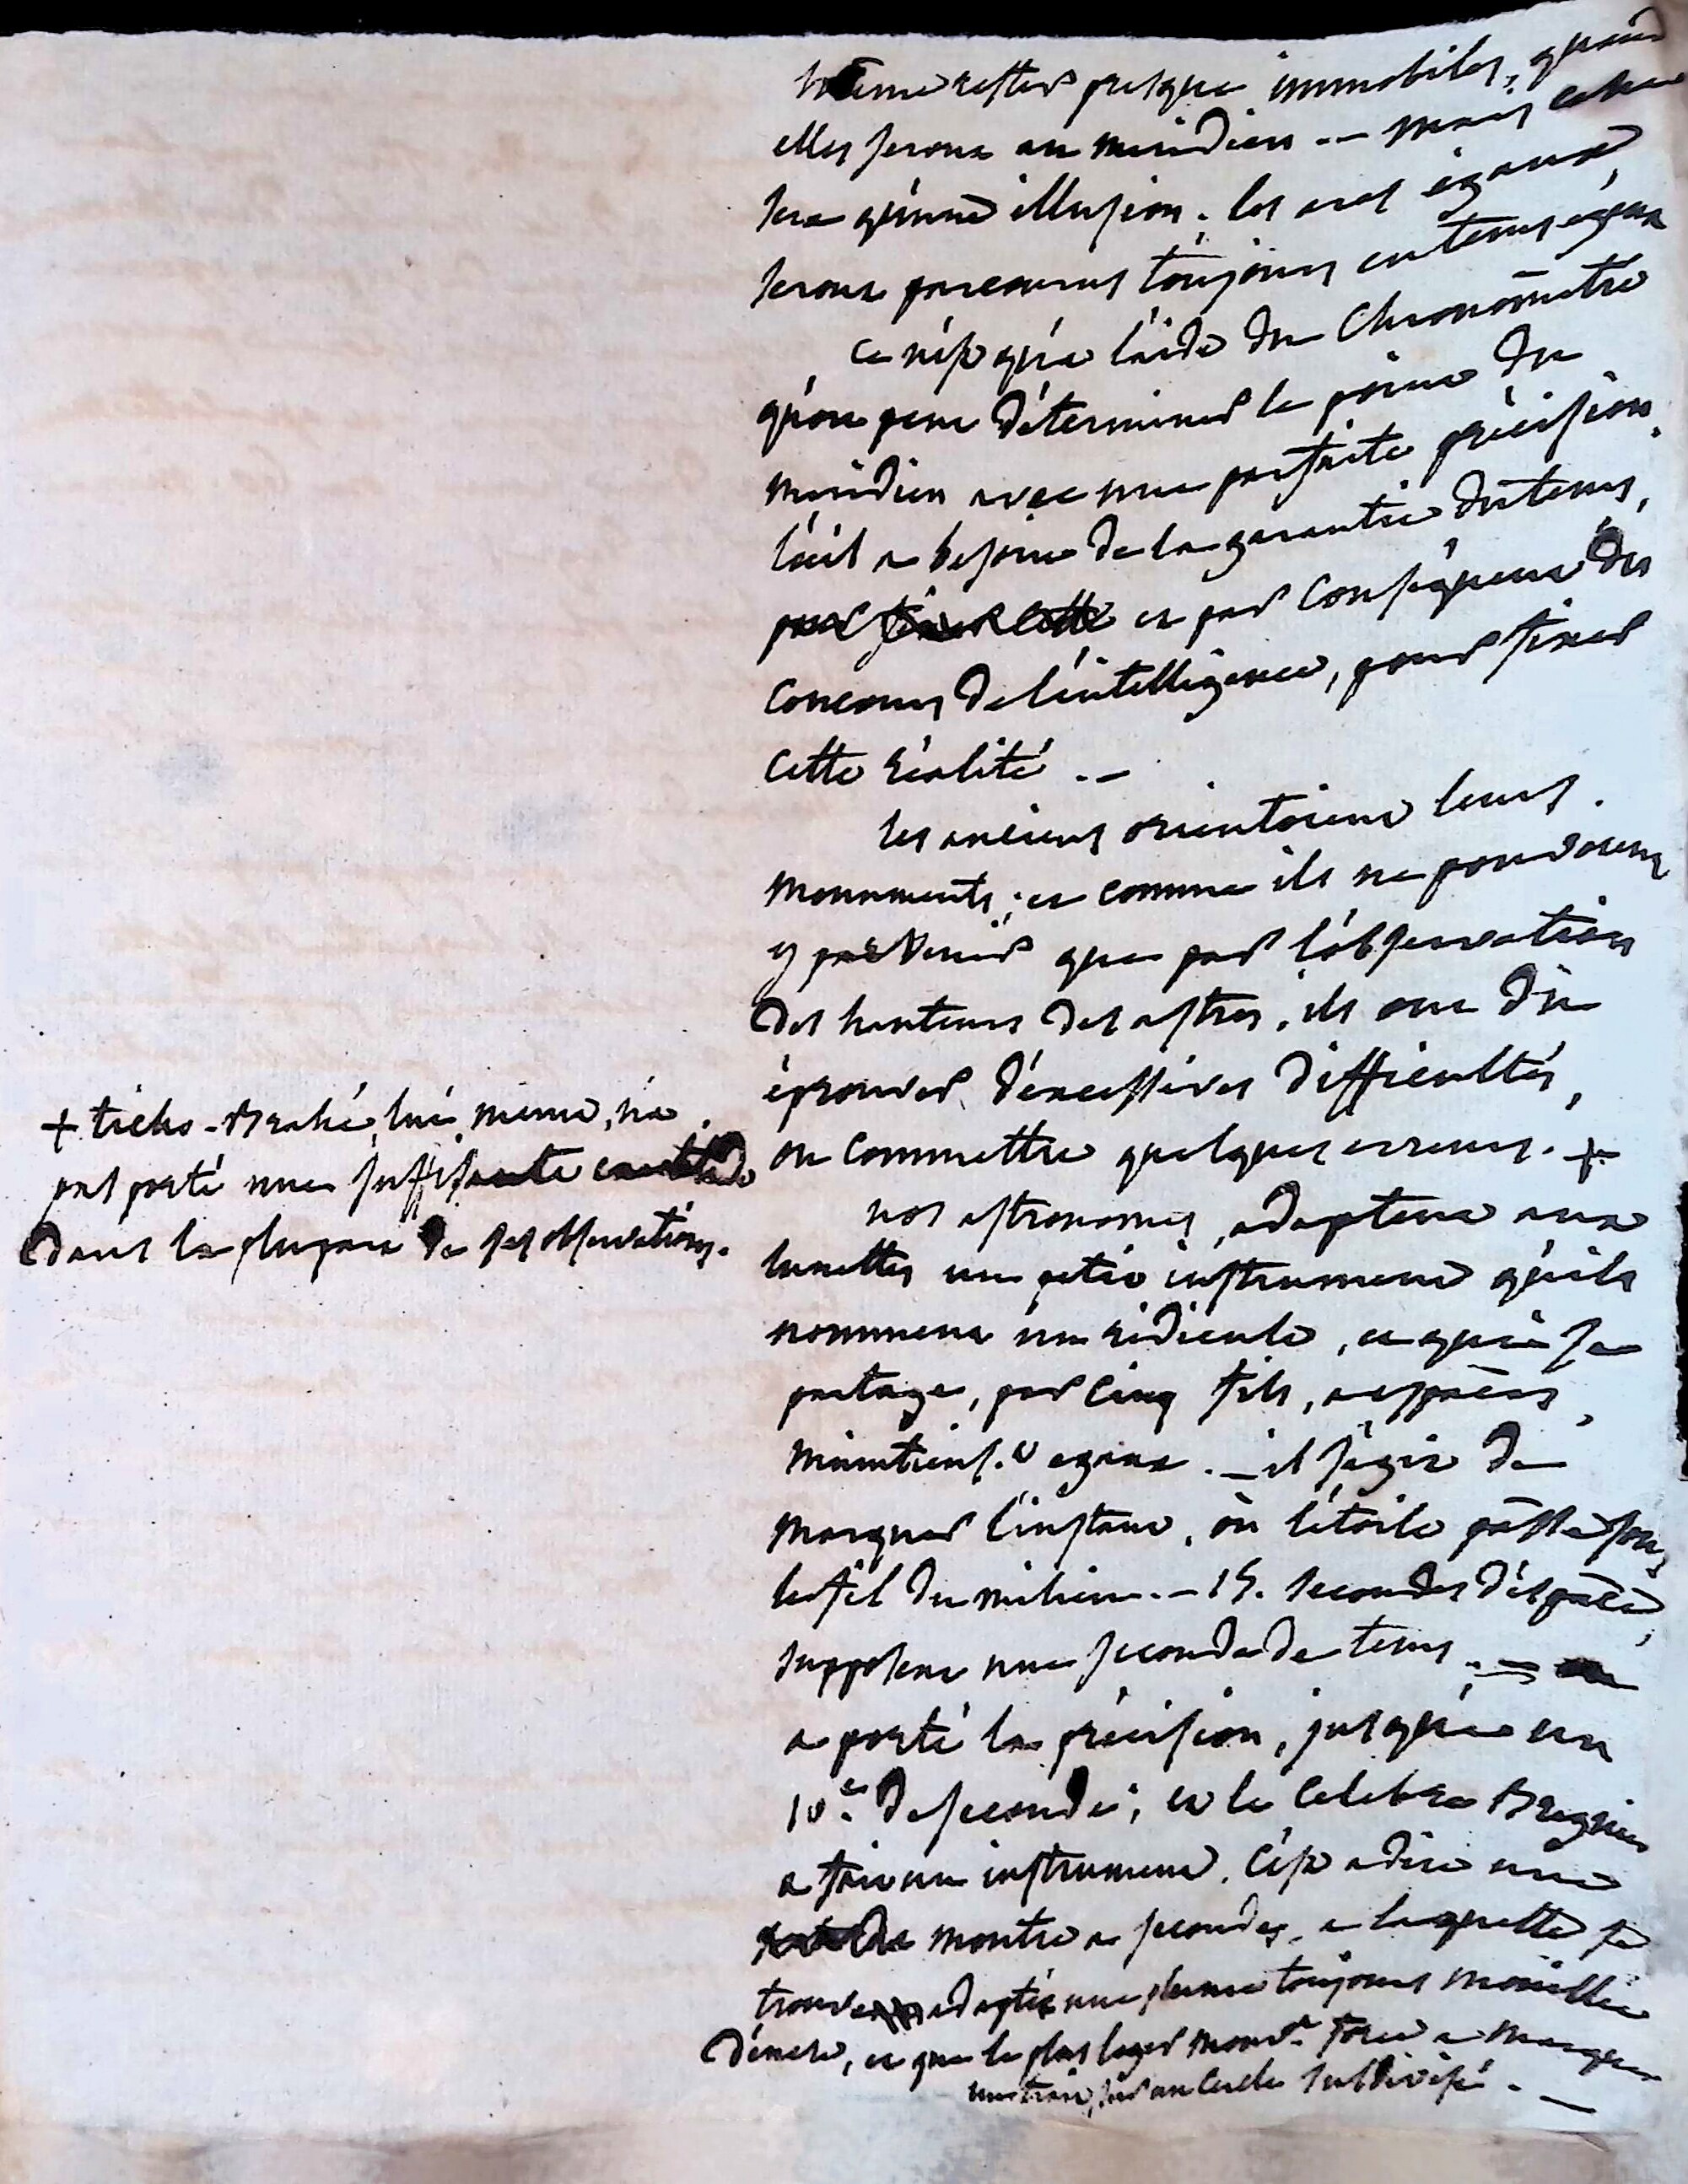 même rester presque immobiles, quand
elles seront au méridien -- mais ce ne
sera qu'une illusion. les arcs égaux,
seront parcourus toujours en tems égaux
ce n'est qu'a l'aide du Chronomètre
qu'on peut déterminer le point du
méridien avec une parfaite précision.
l'œil a besoin de la garantie du tems,
et par conséquent du
concours de l'intelligence, pour fixer
cette réalité. -
les anciens orientoient leurs
monuments; et comme ils ne pouvoient
y parvenir que par l'observation
des hauteurs des astres, ils ont du
éprouver d'excessives difficultés,
ou commettre quelques erreurs. +
+ ticho-Brahé, lui même, n'a
pas porté une suffisante exactitude
dans la plupart de ses observations.
nos astronomes, adaptent aux
lunettes un petit instrument qu'ils
nomment un ridicule, et qui se
partage, par cinq fils, a espaces
égaux. - il s'agit de
marquer l'instant, où l'étoile passe sous
le fil du milieu. - 15. secondes d'espace,
supposent une seconde de tems. -
a porté la précision, jusqu'a un
10e. de seconde; et le celebre Breguet
a fait un instrument. c'est a dire une
montre a secondes, a laquelle se
trouve adaptée une plume toujours mouillée
d'encre, et que le plus leger mouvt. force a marquer
un trait, sur un cercle subdivisé. -